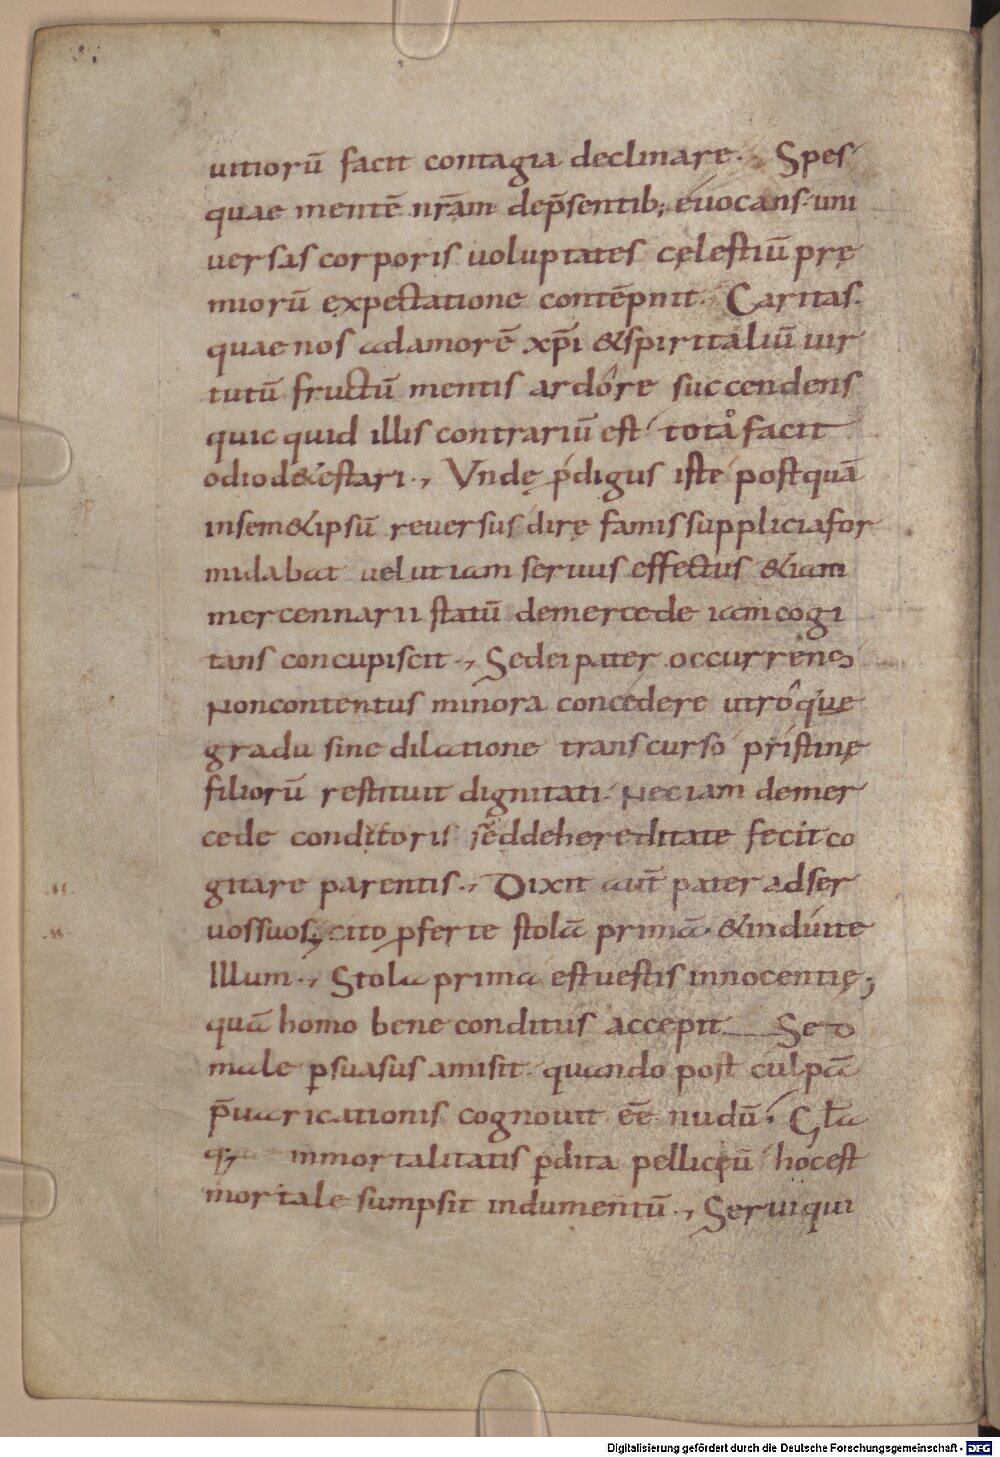 uitiorū facit contagia declinare. Spes
quae mentē nr̄am dep̄sentib; euocans uni
uersas corporis uoluptates cęlestiū prę
miorū expectatione contēpnit. Caritas.
quae nos adamorē xp̄i &spiritaliū uir
tutū fructū mentis ardore succendens
quic quid illis contrariū est totā facit
odiod&estari., Vndę ꝓdigus iste postquā
insem&ipsū reuersus dirę famis suppliciafor
midabat uelutiam seruus effectus &iam
mercennarii statū demercede iamcogi
tans concupiscit., Sedei pater occurrens
Noncontentus minora concedere utroque
gradu sine dilatione transcurso pristinę
filiorū restituit dignitati. Neciam demer
cede conditoris seddehereditate fecit co
gitare parentis., Dixit aut̄ pater adser
uossuos, cito ꝓferte stolā primā. &induite
Illum., Stola prima estuestis innocentię;
quā homo bene conditus accepit Sed
male ꝑsuasus amisit. quando post culpā
p̄uaricationis cognouit eē nudū. Gl̄a
q; inmortalitatis ꝑdita pelliceū hocest
mortale sumpsit indumentū., Seruiqui
Digitalisierung gefördert durch die Deutsche Forschungsgemeinschaft - DFG